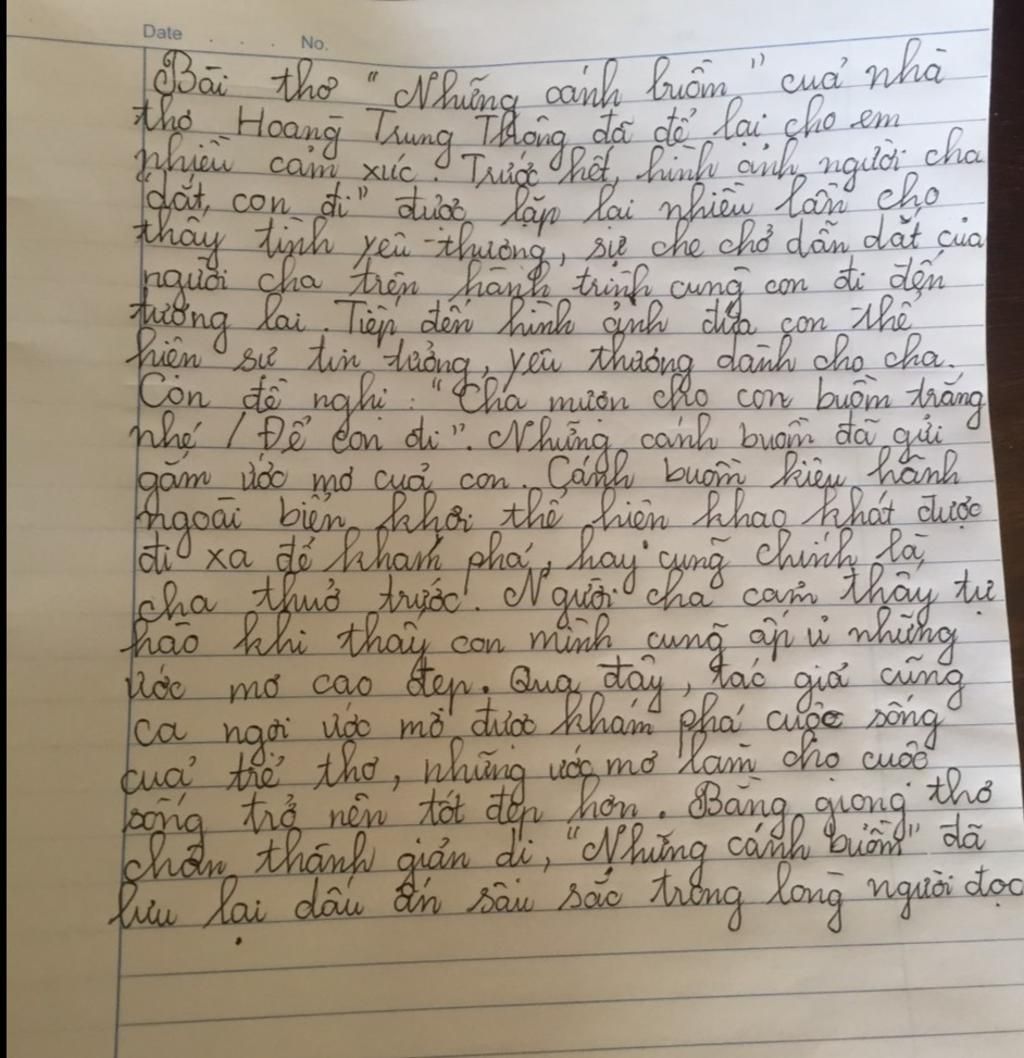 Date . . . . No.
Bài thơ "Những cánh buồm" cuả nhà
thơ Hoàng Trung Thông đã để lại cho em
nhiều cảm xúc. Trước hết, hình ảnh người cha
"dắt, con đi" được lặp lại nhiều lần cho
thấy tình yêu thương, sự che chở dẫn dắt của
người cha trên hành trình cùng con đi đến
tương lai. Tiếp đến hình ảnh đứa con thể
hiện sự tin tưởng, yêu thương dành cho cha.
Con đề nghị: "Cha mượn cho con buồm trắng
nhé / Để con đi". Những cánh buồm đã gửi
gắm ước mơ cuả con. Cánh buồm kiêu hãnh
ngoài biển khơi thể hiện khao khát được
đi xa để khám phá, hay cũng chính là
cha thuở trước. Người cha cảm thấy tự
hào khi thấy con mình cũng ấp ủ những
ước mơ cao đẹp. Qua đây, tác giả cũng
ca ngợi ước mơ được khám phá cuộc sống
cuả trẻ thơ, những ước mơ làm cho cuộc
sống trở nên tốt đẹp hơn. Bằng giọng thơ
chân thành giản dị, "Những cánh buồm" đã
lưu lại dấu ấn sâu sắc trong lòng người đọc
.